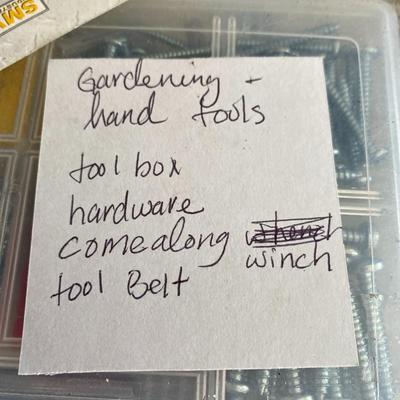 Gardening +
hand tools
tool box
hardware
comealong
winch
tool Belt
SM